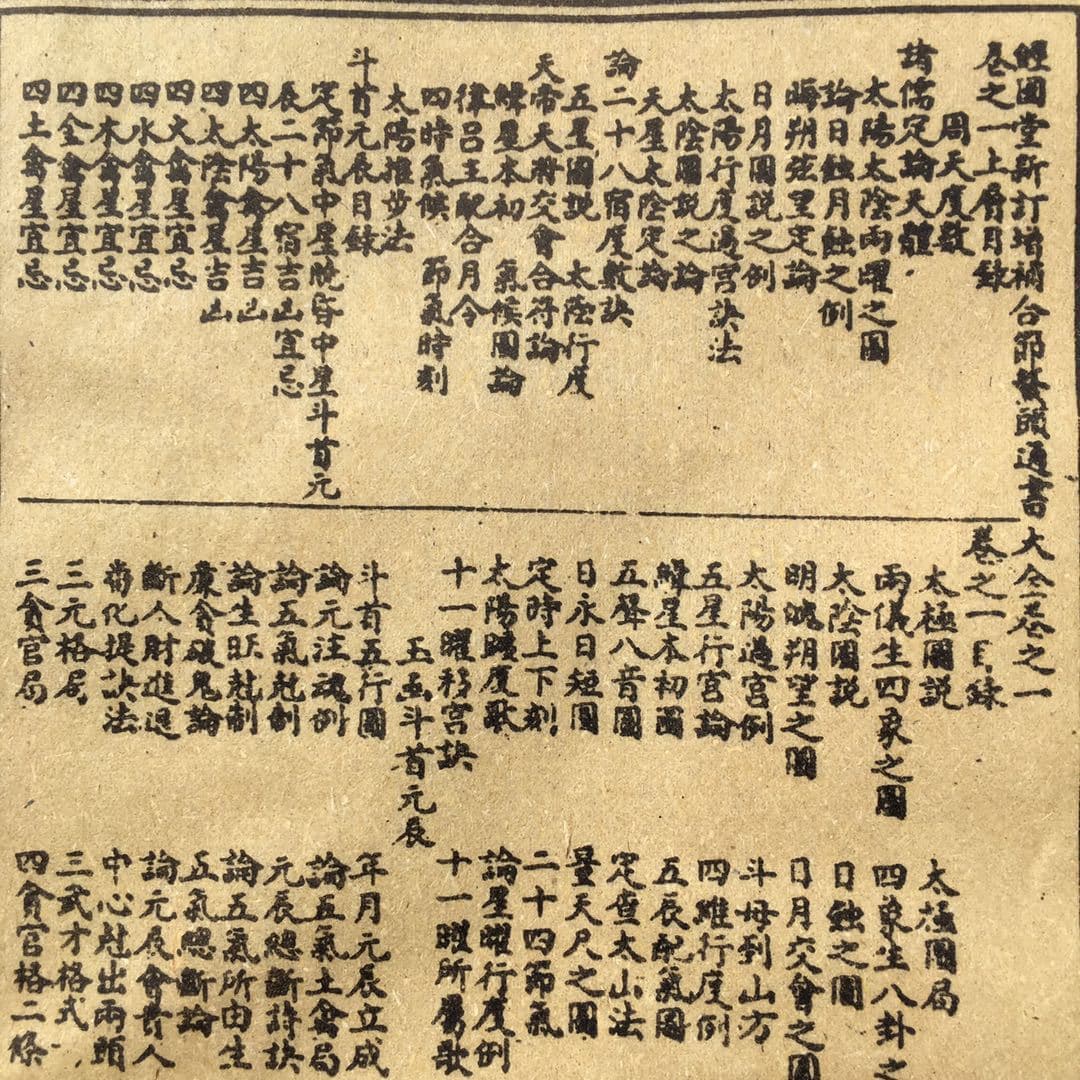 經國堂新訂增補合節鰲頭通書大全卷之一
卷之一上層目錄
周天度數
諸儒定論天體
太陽太陰兩曜之圖
論日蝕月蝕之例
晦朔弦望定論
日月圖說之例
太陽行度過宮訣法
太陰圖說之論
天星太陰定論
論二十八宿度數訣
五星圖說　太陰行度
天帝天將交會合符論
緯星本初　氣候圖論
律呂主配合月令
四時氣候　節氣時刻
太陽推步法
斗首元辰目錄
定節氣中星曉昏中星斗首元
辰二十八宿吉凶宜忌
四太陽禽星吉凶
四太陰禽星吉凶
四火禽星宜忌
四水禽星宜忌
四木禽星宜忌
四金禽星宜忌
四土禽星宜忌
卷之一目錄
太極圖說　太極圖局
兩儀生四象之圖　四象生八卦之
太陰圖說　日蝕之圖
明魄朔望之圖　日月交會之圖
太陽過宮例　斗母到山方
五星行宮論　四維行度例
緯星本初圖　五辰配氣圖
五聲八音圖　定查太山法
日永日短圖　量天尺之圖
定時上下刻　二十四節氣
太陽躔度歌　論星曜行度例
十一曜移宮訣　十一曜所屬歌
玉函斗首元辰
斗首五行圖　年月元辰立成
論元注魂例　論五氣土禽局
論五氣尅制　元辰總斷詩訣
論生旺尅制　論五氣所由生
廉貪破鬼論　五氣總斷論
斷人財進退　論元辰會貴人
喬化提訣法　中心尅出兩頭
三元格局　三武才格式
三貪官局　四貪官格二條